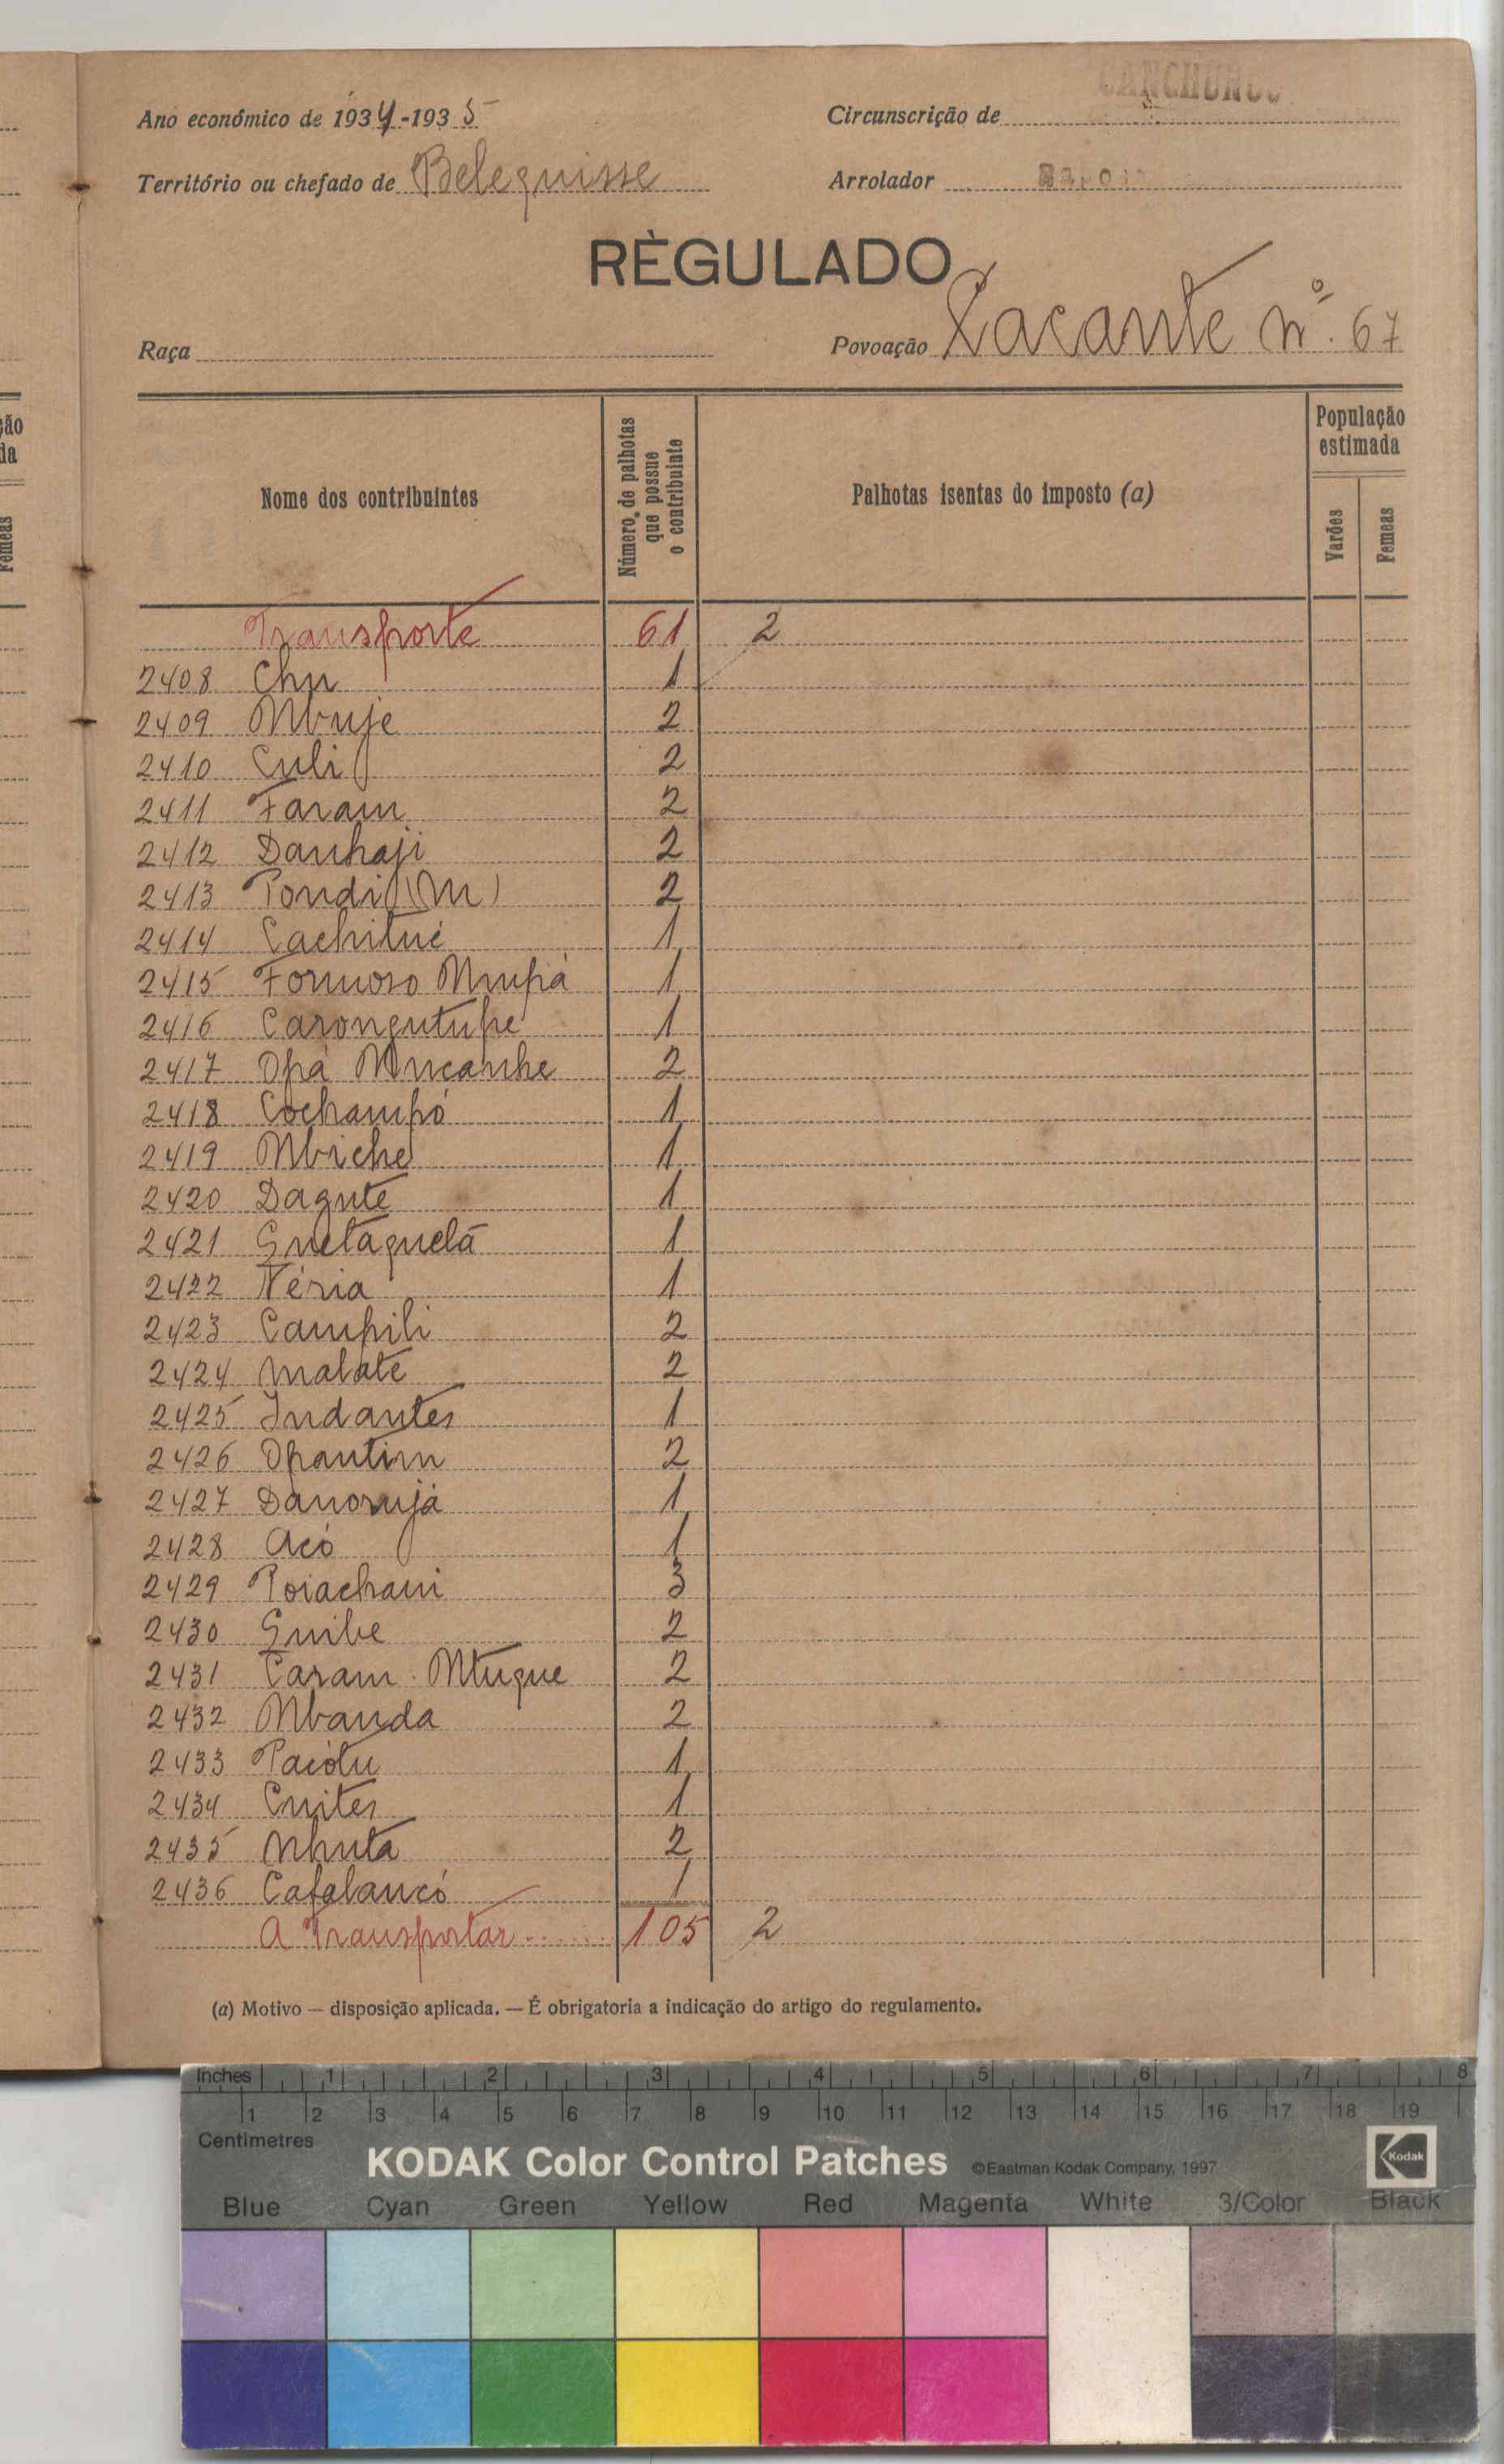 CANCHUNGO
Ano económico de 1934-1935
Circunscrição de
Território ou chefado de Beleguisse
Arrolador
RÈGULADO
Raça
Povoação Cacante nº. 67
Nome dos contribuintes
Número de palhotas que possue o contribuinte
Palhotas isentas do imposto (a)
População estimada
Varões
Femeas
Transporte 61 2
2408 Chu 1
2409 Mbuje 2
2410 Culi 2
2411 Faram 2
2412 Danhaji 2
2413 Pondi (M) 2
2414 Cachitué 1
2415 Formoso Mupá 1
2416 Carongutupe 1
2417 Opá Mucanhe 2
2418 Cochampó 1
2419 Mbiche 1
2420 Dagute 1
2421 Guetaguelã 1
2422 Néria 1
2423 Campili 2
2424 Malate 2
2425 Indantes 1
2426 Opantim 2
2427 Danorujá 1
2428 Acó 1
2429 Poiachani 3
2430 Guibe 2
2431 Caram Ntugue 2
2432 Mbanda 2
2433 Paiólu 1
2434 Cuites 1
2435 Nhuta 2
2436 Cafalancó 1
A Transportar 105 2
(a) Motivo — disposição aplicada. — É obrigatoria a indicação do artigo do regulamento.
Inches 1 2 3 4 5 6 7 8
1 2 3 4 5 6 7 8 9 10 11 12 13 14 15 16 17 18 19
Centimetres
KODAK Color Control Patches ©Eastman Kodak Company, 1997 Kodak
Blue Cyan Green Yellow Red Magenta White 3/Color Black